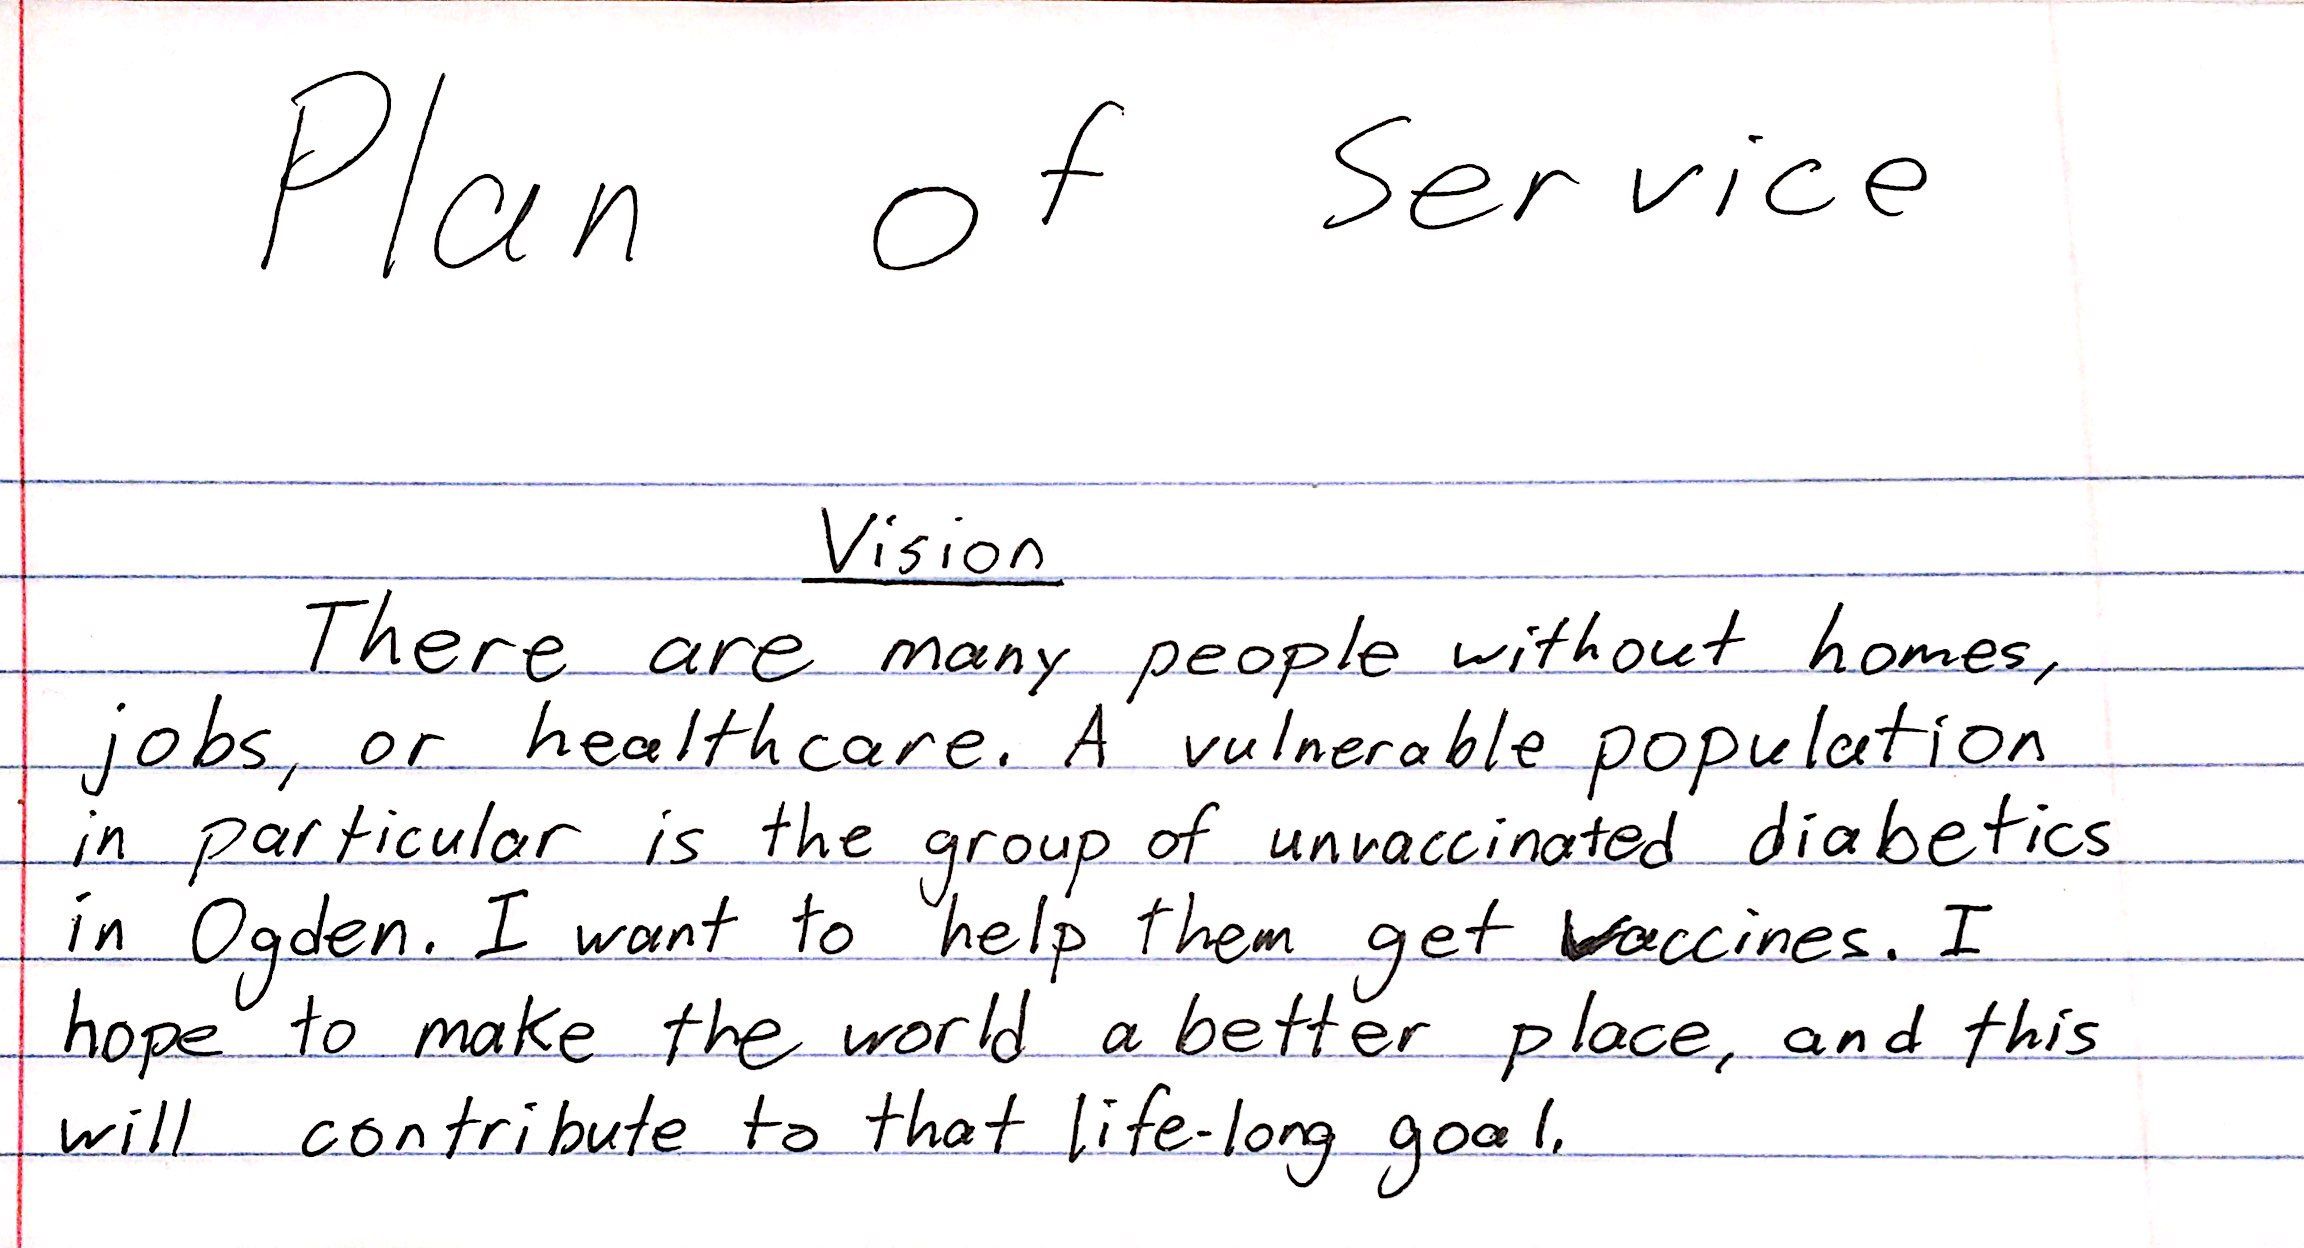 Plan of Service
Vision
There are many people without homes,
jobs, or healthcare. A vulnerable population
in particular is the group of unvaccinated diabetics
in Ogden. I want to help them get vaccines. I
hope to make the world a better place, and this
will contribute to that life-long goal.